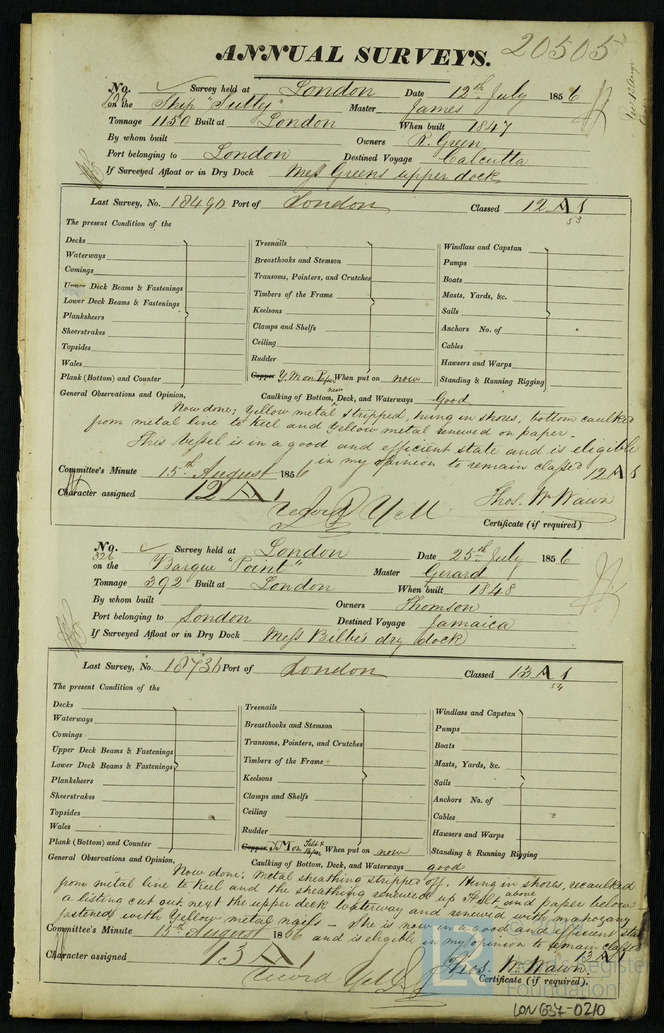 ANNUAL SURVEYS. 20505
No. Survey held at London Date 12th July 1856
on the Ship "Sutlej" Master James
Tonnage 1150 Built at London When built 1847
By whom built Owners R. Green
Port belonging to London Destined Voyage Calcutta
If Surveyed Afloat or in Dry Dock Mess Greens upper dock
Last Survey, No. 18490 Port of London Classed 12 A 1
53
The present Condition of the
Decks Treenails Windlass and Capstan
Waterways Breasthooks and Stemson Pumps
Comings Transoms, Pointers, and Crutches Boats
Upper Deck Beams & Fastenings Timbers of the Frame Masts, Yards, &c.
Lower Deck Beams & Fastenings Keelsons Sails
Planksheers Clamps and Shelfs Anchors No. of
Sheerstrakes Ceiling Cables
Topsides Rudder Hawsers and Warps
Wales Copper Y. M on Paper When put on now Standing & Running Rigging
Plank (Bottom) and Counter
General Observations and Opinion, Caulking of Bottom, Deck, and Waterways Good
Now done; Yellow metal stripped, hung in shores, bottom caulked
from metal line to keel and Yellow metal renewed on paper.
This Vessel is in a good and efficient state and is eligible
in my opinion to remain classed 12 A 1
Committee's Minute 15th August 1856
Character assigned 12 A 1 Thos. W. Wawn
record YM
Certificate (if required)
No. Survey held at London Date 25th July 1856
326
on the Barque "Tocint" Master Gerard
Tonnage 392 Built at London When built 1848
By whom built Owners Thomson
Port belonging to London Destined Voyage Jamaica
If Surveyed Afloat or in Dry Dock Mess Bilbes dry dock
Last Survey, No. 18736 Port of London Classed 13 A 1
54
The present Condition of the
Decks Treenails Windlass and Capstan
Waterways Breasthooks and Stemson Pumps
Comings Transoms, Pointers, and Crutches Boats
Upper Deck Beams & Fastenings Timbers of the Frame Masts, Yards, &c.
Lower Deck Beams & Fastenings Keelsons Sails
Planksheers Clamps and Shelfs Anchors No. of
Sheerstrakes Ceiling Cables
Topsides Rudder Hawsers and Warps
Wales Copper, Y M on Felt & Paper When put on now Standing & Running Rigging
Plank (Bottom) and Counter
General Observations and Opinion, Caulking of Bottom, Deck, and Waterways good
Now done; Metal sheathing stripped off. Hung in shores, recaulked
from metal line to keel and the sheathing renewed up Felt above and paper below
a listing cut out next the upper deck waterway and renewed with mahogany
fastened with Yellow metal nails - She is now in a good and efficient state
and is eligible in my opinion to remain classed
Committee's Minute 15th August 1856 13 A 1
Character assigned 13 A 1 Thos. W. Wawn
record YM
Certificate (if required).
Lloyd's Register
Foundation
LON 637-0210